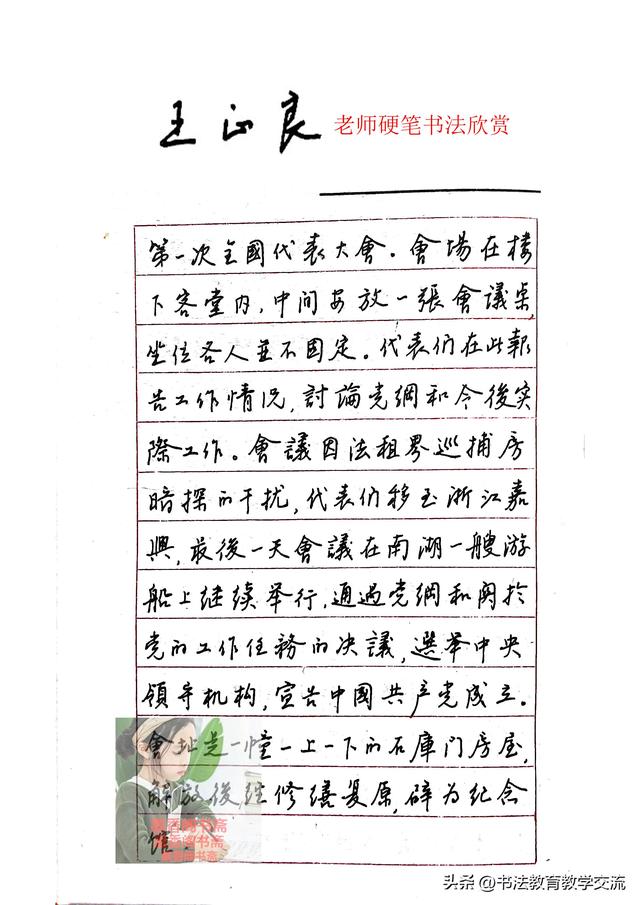 王正良 老师硬笔书法欣赏
第一次全國代表大會。會場在樓
下客堂内，中间安放一張會議桌，
坐位各人並不固定。代表们在此報
告工作情况，討論党綱和今後实
際工作。會議因法租界巡捕房
暗探的干扰，代表们移至浙江嘉
興，最後一天會議在南湖一艘游
船上继续举行，通過党綱和関於
党的工作任務的决議，選举中央
領导机构，宣告中國共产党成立。
會址是一幢一上一下的石庫门房屋，
解放後经修缮复原，辟为纪念
馆。
书斋
书斋
书斋
头条 @书法教育教学交流